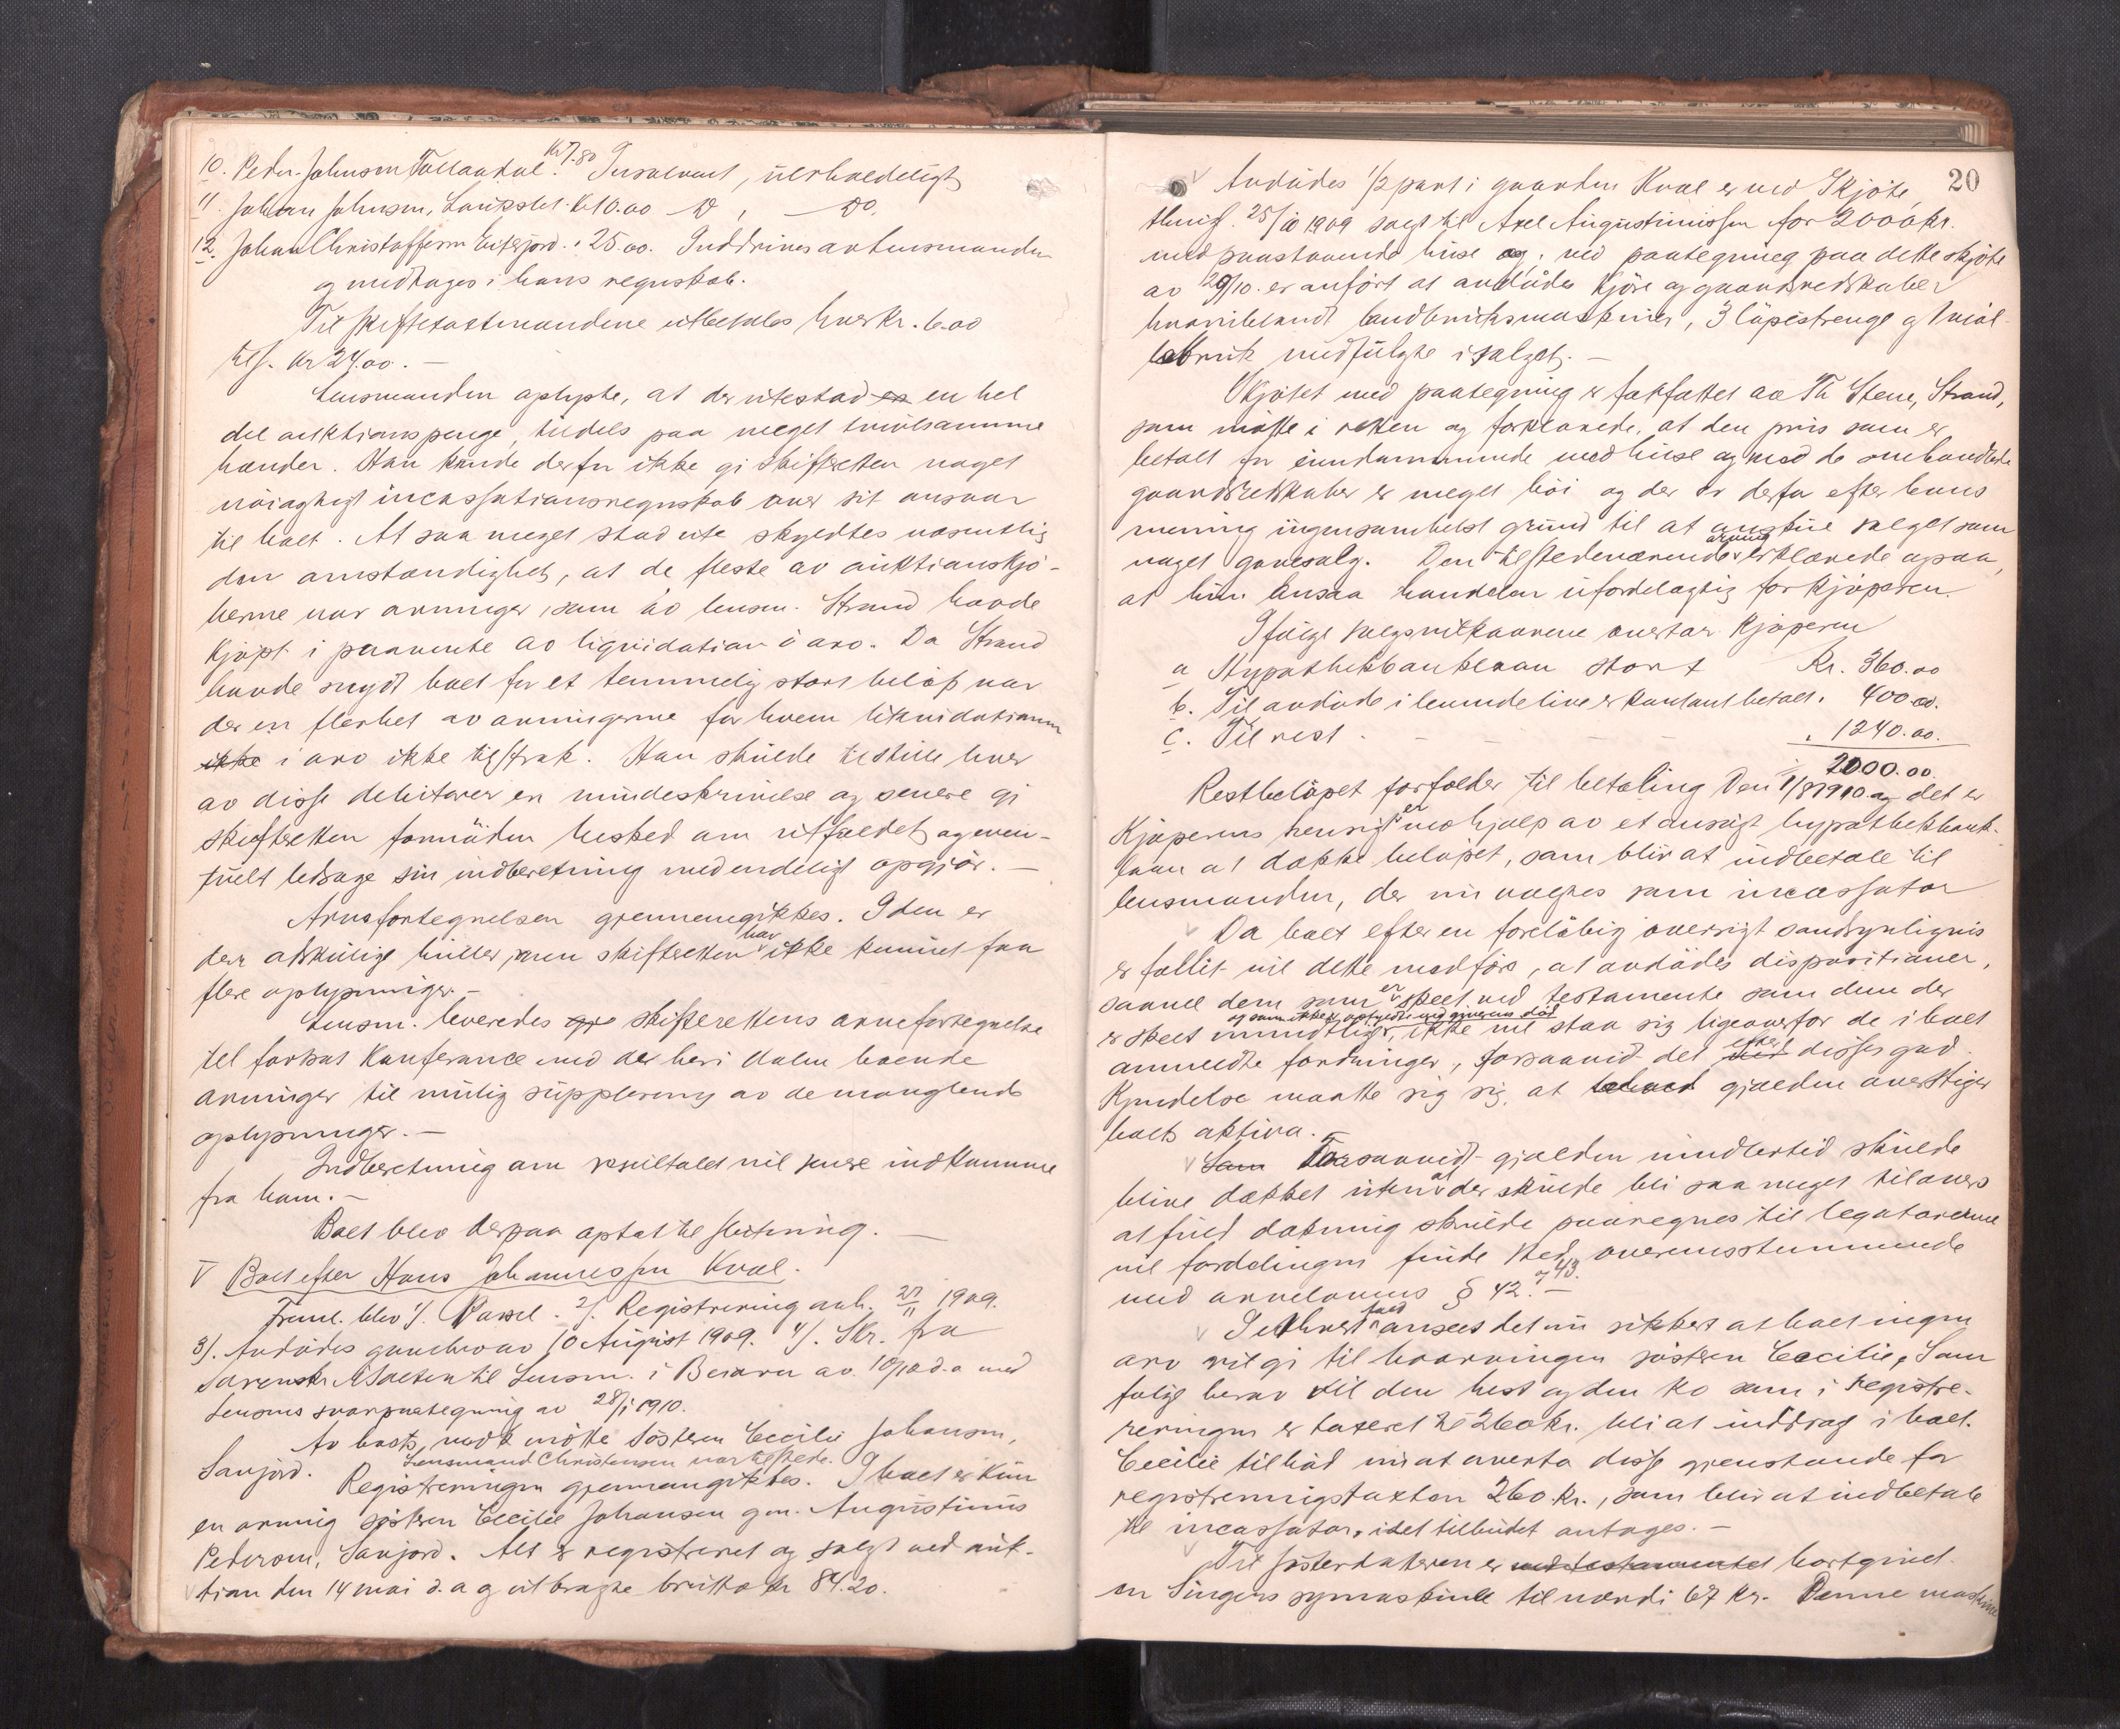 10. Peder Johnsen Tollaadal. Kr 7.80 Insolvent, uerholdeligt
11. Johan Johnsen, Kr 10.00 Do, Do.
12. Johan Christoffersen Eiterjord. " 25.00. Inddrives av lensmanden
og medtages i hans regnskab.
Til skiftetakstmændene utbetales hver kr. 6.00
tils. kr 24.00. —
Lensmanden oplyste, at der utestod en hel
del auktionspenge, tildels paa meget tvivlsomme
hænder. Han kunde derfor ikke gi skifteretten noget
nöiagtigt incassationsregnskab over sit ansvar
til boet. At saa meget stod ute skyldtes væsentlig
den omstændighet, at de fleste av auktionskjö-
berne var arvinger, som av lensm. Strand havde
kjöpt i paavente av liquidation i arv. Da Strand
havde snydt boet for et temmelig stort belöp var
der en flerhet av arvingerne for hvem likvidationen
ikke i arv ikke tilstrak. Han skulde tilstille hver
av disse debitorer en mindeskrivelse og senere gi
skifteretten fornöiden besked om utfaldet og even-
tuelt ledsage sin indberetning med endeligt opgjör. —
Arvefortegnelsen gjennemgikkes. I den er
der adskillige huller, men skifteretten har ikke kunnet faa
flere oplysninger. —
Lensm. leveredes skifterettens arvefortegnelse
til fortsat konferance med de her i dalen boende
arvinger til mulig supplering av de manglende
oplysninger. —
Indberetning om resultatet vil senere indkomme
fra ham. —
Boet blev derpaa optat til slutning. —
V Boet efter Hans Johannessen Kvæl.
Freml. blev 1/. Passel. 2/. Registrering avh. 27/11 1909.
3/. Avdödes gavebrev av 10 August 1909. 4/. Skr. fra
Sorenskr. i Salten til Lensm. i Beiarn av 10/1 d.a. med
Lensms svarpaategning av 28/1 1910.
Av boets vedk. mötte Sösteren Cecilie Johansen,
Sanjord. Lensmand Christensen var tilstede.
Registreringen gjennemgikkes. I boet er kun
en arving sösteren Cecilie Johansen gm. Augustinus
Pedersen, Sanjord. Alt er registreret og solgt ved auk-
tion den 14 mai d.a og utbragte brutto kr 84.20.
20
Avdödes 1/2 part i gaarden Kvæl er ved Skjöte,
thinl. 25/10 1909 solgt til Axel Augustinussen for 2000 kr.
med paastaaende huse og, ved paategning paa dette skjöte
av 29/10. er anfört at avdödes kjöre og gaardsredskaber
hvoriblandt landbruksmaskiner, 3 löpestrenge og
bruk medfulgte i salget. —
Skjötet med paategning er forfattet av Th Stene, Strand,
som mötte i retten og forklarede, at den pris som er
betalt for eiendommen med huse og med de omhandlede
gaardsredskaber er meget höi og der er derfor efter hans
mening ingensomhelst grund til at anskue salget som
noget gavesalg. Den tilstedeværende arving erklærede ogsaa,
at hun ansaa handelen ufordelagtig for kjöperen.
Ifölge salgsvilkaarene overtar kjöperen
a Hypothekbanklaan stort Kr. 360.00
b. Til avdöde i levende live er kontant betalt " 400.00.
c. Til rest - - - - - " 1240.00.
2000.00.
Restbelöpet forfalder til betaling den 1/8 1910. og det er
kjöperens hensigt ved hjælp av et ansögt hypothekbank-
laan at dække belöpet, som blir at indbetale til
lensmanden, der nu vælges som incassator
Da boet efter en foreløbig oversigt sandsynligvis
er fallit vil dette medföre, at avdödes dispositioner,
saavel dem som er skeet ved testamente som dem der
er skeet mundtlig, og som ikke er opfyldt ved giverens död ikke vil staa sig ligeoverfor de i boet
anmeldte fordringer, forsaavidt det efter disses god-
kjendelse maatte vise sig, at gjælden overstiger
boets aktiva. —
Som Forsaavidt gjælden imidlertid skulde
blive dækket uten at der skulde bli saa meget tilovers
at fuld dækning skulde paaregnes til legatarerne
vil fordelingen finde sted overensstemmende
med arvelovens § 42. 43. —
I ethvert fald ansees det nu sikkert at boet ingen
arv vil gi til hovarvingen sösteren Cecilie. Som
følge herav vil den hest og den ko som i registre-
reringen er taxeret til 260 kr. bli at inddrag i boet.
Cecilie tilböd nu at overta disse gjenstande for
registreringstaxten 260 kr., som blir at indbetale
til incassator, idet tilbudet antages. —
Til søsterdatteren er ved testamentet bortgivet
en Singers symaskine til værdi 67 kr. Denne maskine